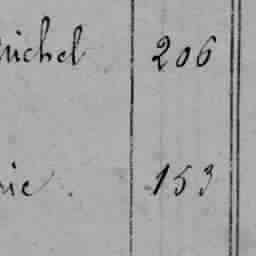 Michel 206
rie. 153